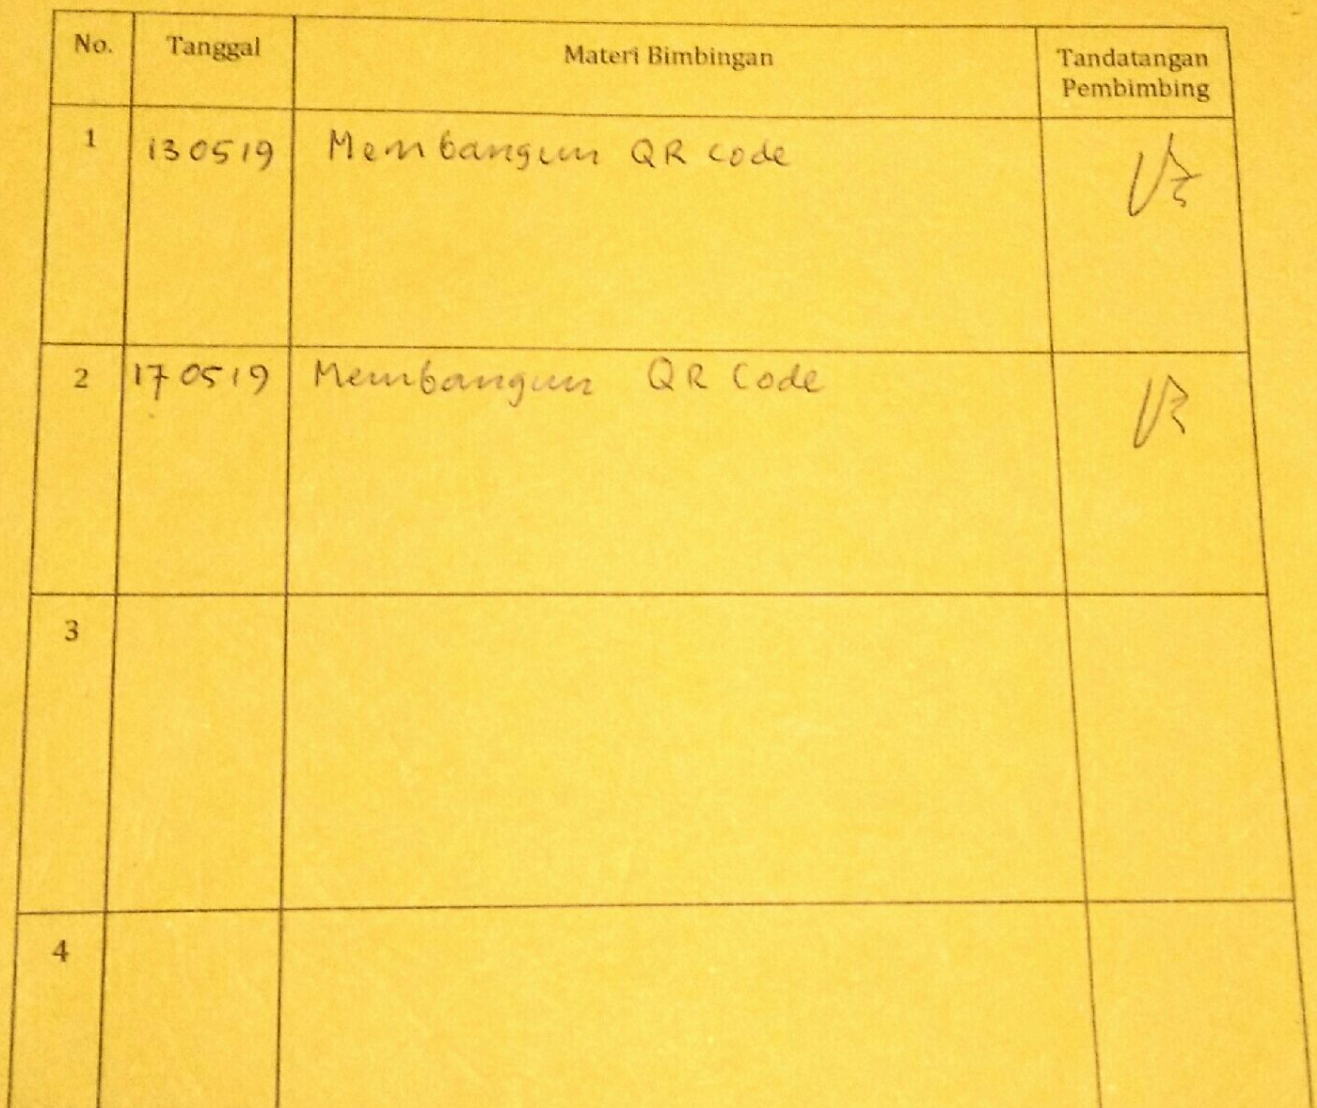 No. Tanggal Materi Bimbingan Tandatangan
Pembimbing
1 130519 Membangun QR code
2 170519 Membangun QR Code
3
4